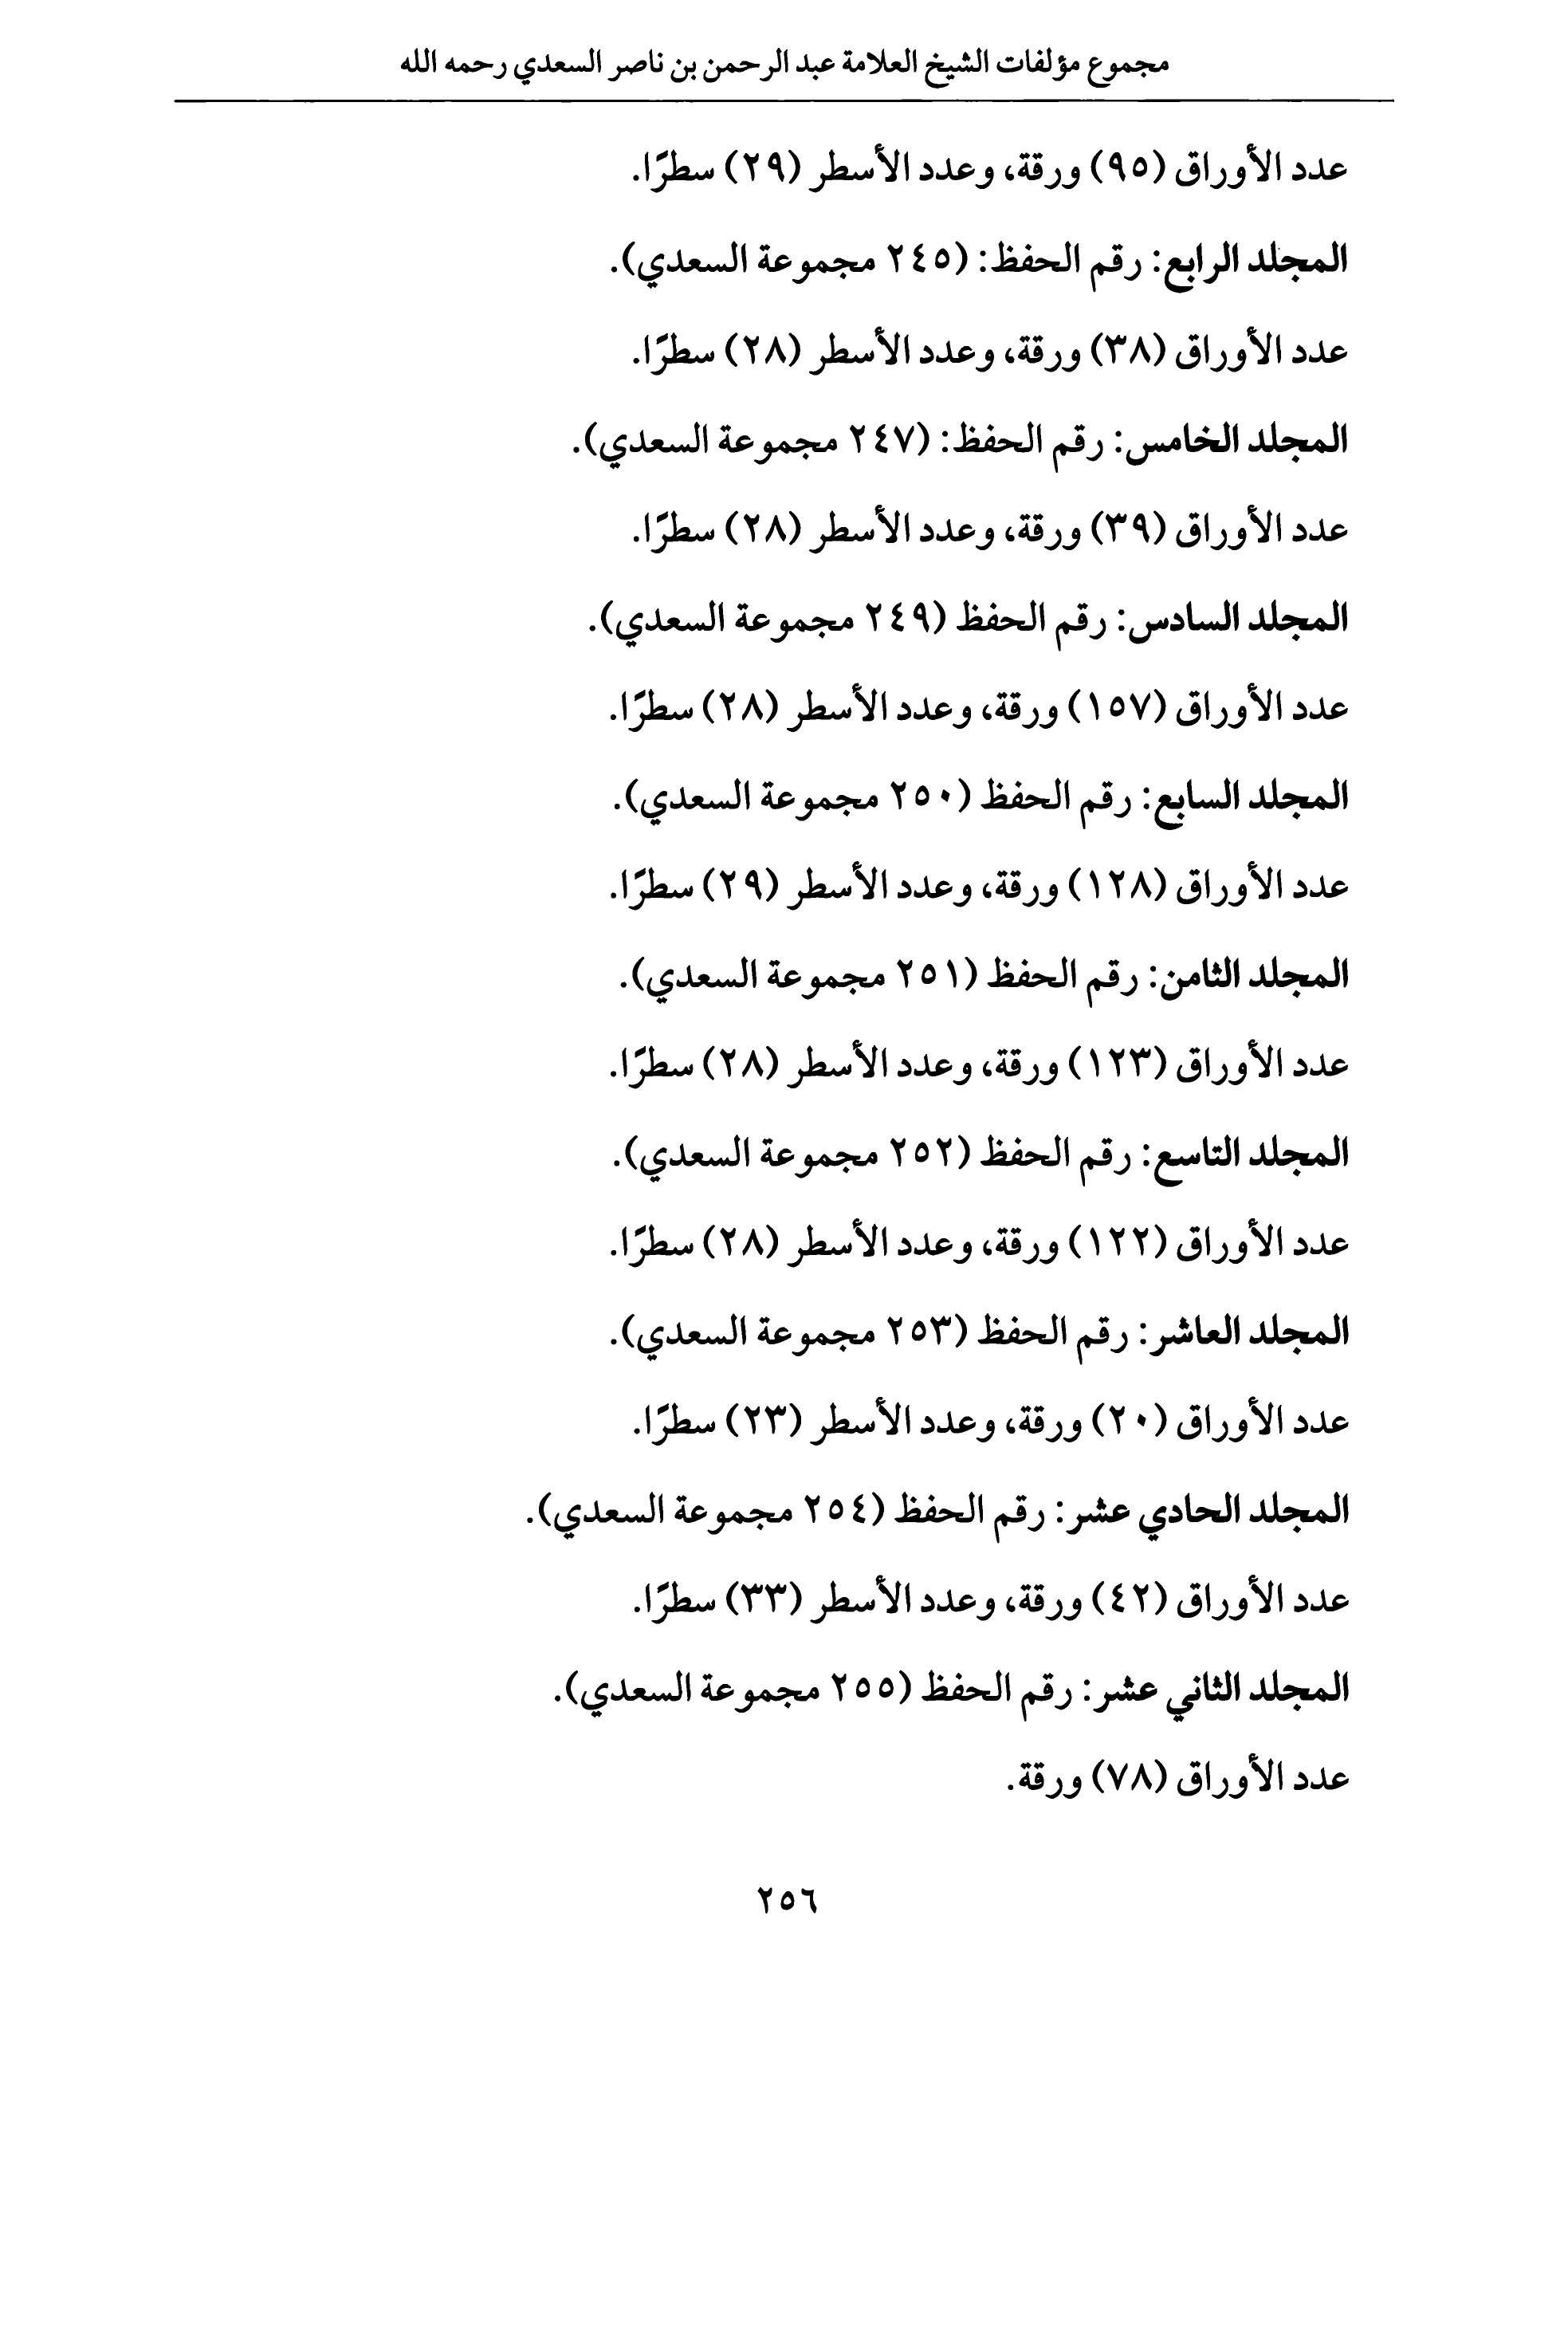 مجموع مؤلفات الشيخ العلامة عبد الرحمن بن ناصر السعدي رحمه الله
عدد الأوراق (٩٥) ورقة، وعدد الأسطر (٢٩) سطرًا.
المجلد الرابع: رقم الحفظ: (٢٤٥ مجموعة السعدي).
عدد الأوراق (٣٨) ورقة، وعدد الأسطر (٢٨) سطرًا.
المجلد الخامس: رقم الحفظ: (٢٤٧ مجموعة السعدي).
عدد الأوراق (٣٩) ورقة، وعدد الأسطر (٢٨) سطرًا.
المجلد السادس: رقم الحفظ (٢٤٩ مجموعة السعدي).
عدد الأوراق (١٥٧) ورقة، وعدد الأسطر (٢٨) سطرًا.
المجلد السابع: رقم الحفظ (٢٥٠ مجموعة السعدي).
عدد الأوراق (١٢٨) ورقة، وعدد الأسطر (٢٩) سطرًا.
المجلد الثامن: رقم الحفظ (٢٥١ مجموعة السعدي).
عدد الأوراق (١٢٣) ورقة، وعدد الأسطر (٢٨) سطرًا.
المجلد التاسع: رقم الحفظ (٢٥٢ مجموعة السعدي).
عدد الأوراق (١٢٢) ورقة، وعدد الأسطر (٢٨) سطرًا.
المجلد العاشر: رقم الحفظ (٢٥٣ مجموعة السعدي).
عدد الأوراق (٢٠) ورقة، وعدد الأسطر (٢٣) سطرًا.
المجلد الحادي عشر: رقم الحفظ (٢٥٤ مجموعة السعدي).
عدد الأوراق (٤٢) ورقة، وعدد الأسطر (٣٣) سطرًا.
المجلد الثاني عشر: رقم الحفظ (٢٥٥ مجموعة السعدي).
عدد الأوراق (٧٨) ورقة.
٢٥٦